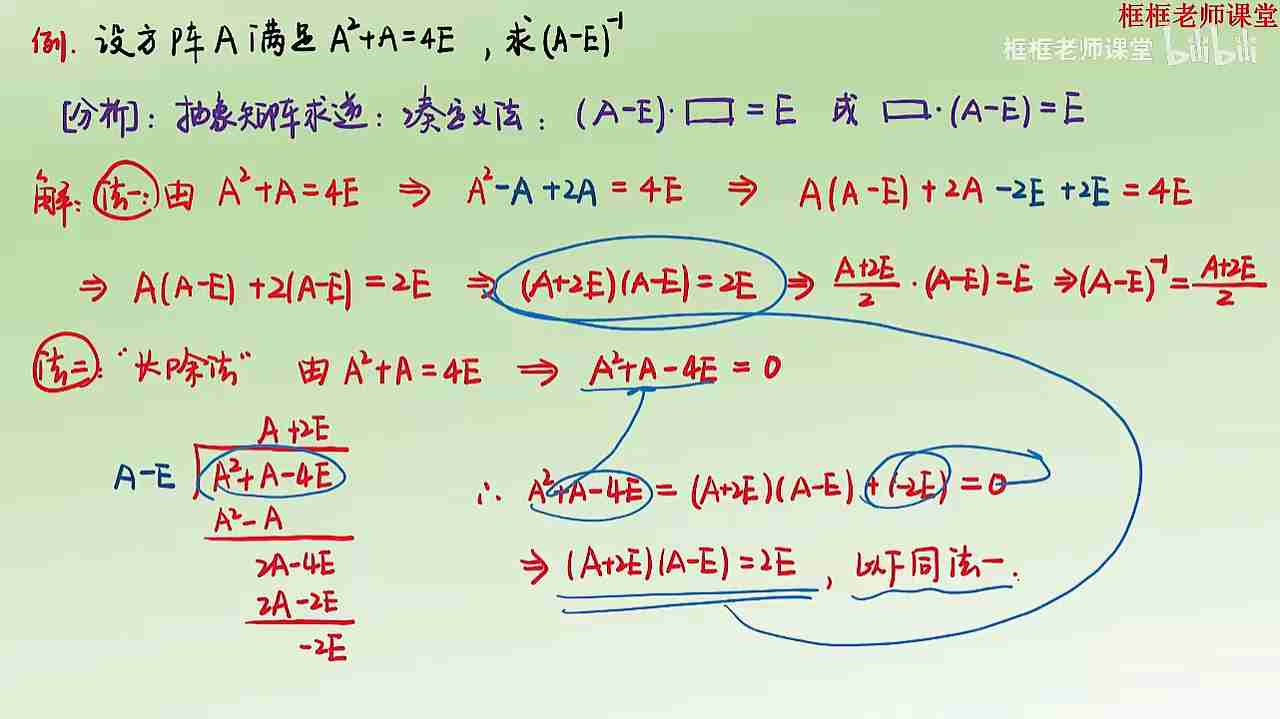 框框老师课堂
框框老师课堂 bilibili
例. 设方阵A满足 A²+A=4E ，求(A-E)⁻¹
[分析]：抽象矩阵求逆：凑定义法：(A-E)·□=E 或 □·(A-E)=E
解：法一：由 A²+A=4E ⇒ A²-A+2A=4E ⇒ A(A-E)+2A-2E+2E=4E
⇒ A(A-E)+2(A-E)=2E ⇒ (A+2E)(A-E)=2E ⇒ (A+2E)/2·(A-E)=E ⇒(A-E)⁻¹=(A+2E)/2
法二：“长除法” 由 A²+A=4E ⇒ A²+A-4E=0
A+2E
A-E A²+A-4E
A²-A
2A-4E
2A-2E
-2E
∴ A²+A-4E=(A+2E)(A-E)+(-2E)=0
⇒ (A+2E)(A-E)=2E，以下同法一.